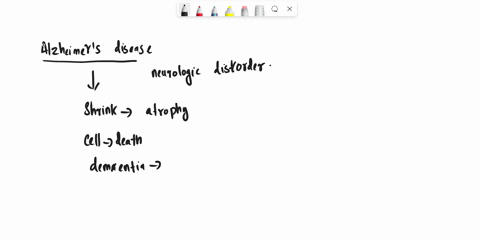 Alzheimer's disease
neurologic distorder.
Shrink → atrophy
Cell → death
dementia →